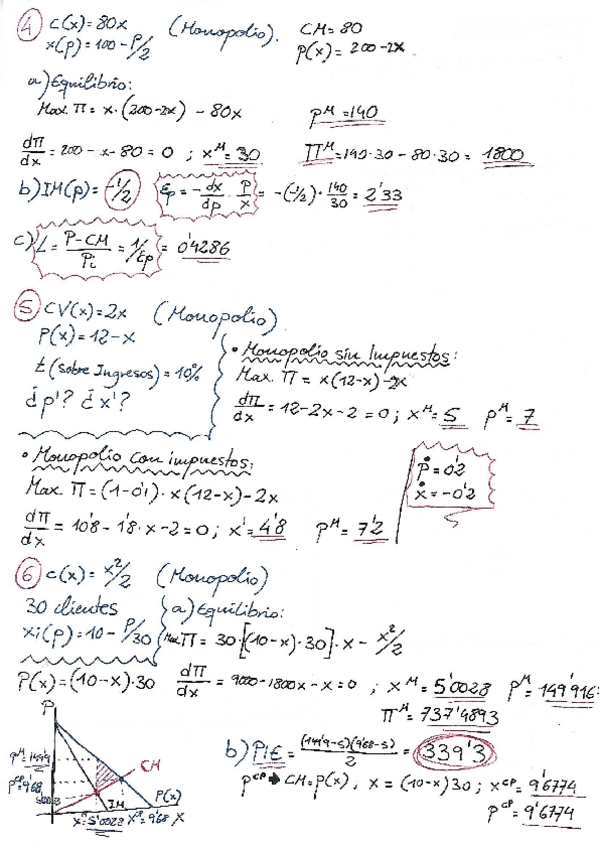 ④ C(x)=80x (Monopolio). CM=80
x(p)=100-P/2 p(x)=200-2x
a) Equilibrio:
Max. Π = x·(200-2x) - 80x pᴹ=140
dΠ/dx = 200-x-80=0 ; xᴹ=30 Πᴹ=140·30-80·30=1800
b) IM(p)=-1/2 εp=-dx/dp·P/x = -(-1/2)·140/30=2'33
c) L=P-CM/Pi=1/εp=0'4286
⑤ CV(x)=2x (Monopolio)
P(x)=12-x
t(sobre Ingresos)=10%
¿p'? ¿x'?
• Monopolio sin Impuestos:
Max. Π = x(12-x)-2x
dΠ/dx=12-2x-2=0; xᴹ=5 pᴹ=7
• Monopolio con impuestos:
Max. Π=(1-0'1)·x(12-x)-2x
dΠ/dx=10'8-1'8·x-2=0; x'=4'8 pᴹ=7'2
ṗ=0'2
ẋ=-0'2
⑥ C(x)=x²/2 (Monopolio)
30 clientes
xi(p)=10-P/30
P(x)=(10-x)·30
a) Equilibrio:
Max. Π=30·[(10-x)·30]·x-x²/2
dΠ/dx=9000-1800x-x=0 ; xᴹ=5'0028 pᴹ=149'916
Πᴹ=737'4893
b) PIE=(149'9-5)(9'68-5)/2=339'3
pᶜᴾ→CM=P(x), x=(10-x)30; xᶜᴾ=9'6774
pᶜᴾ=9'6774
P
pᴹ=149'9
pᶜᴾ=9'68
5'0028
CM
IM
P(x)
xᴹ=5'0028 xᶜᴾ=9'68 x